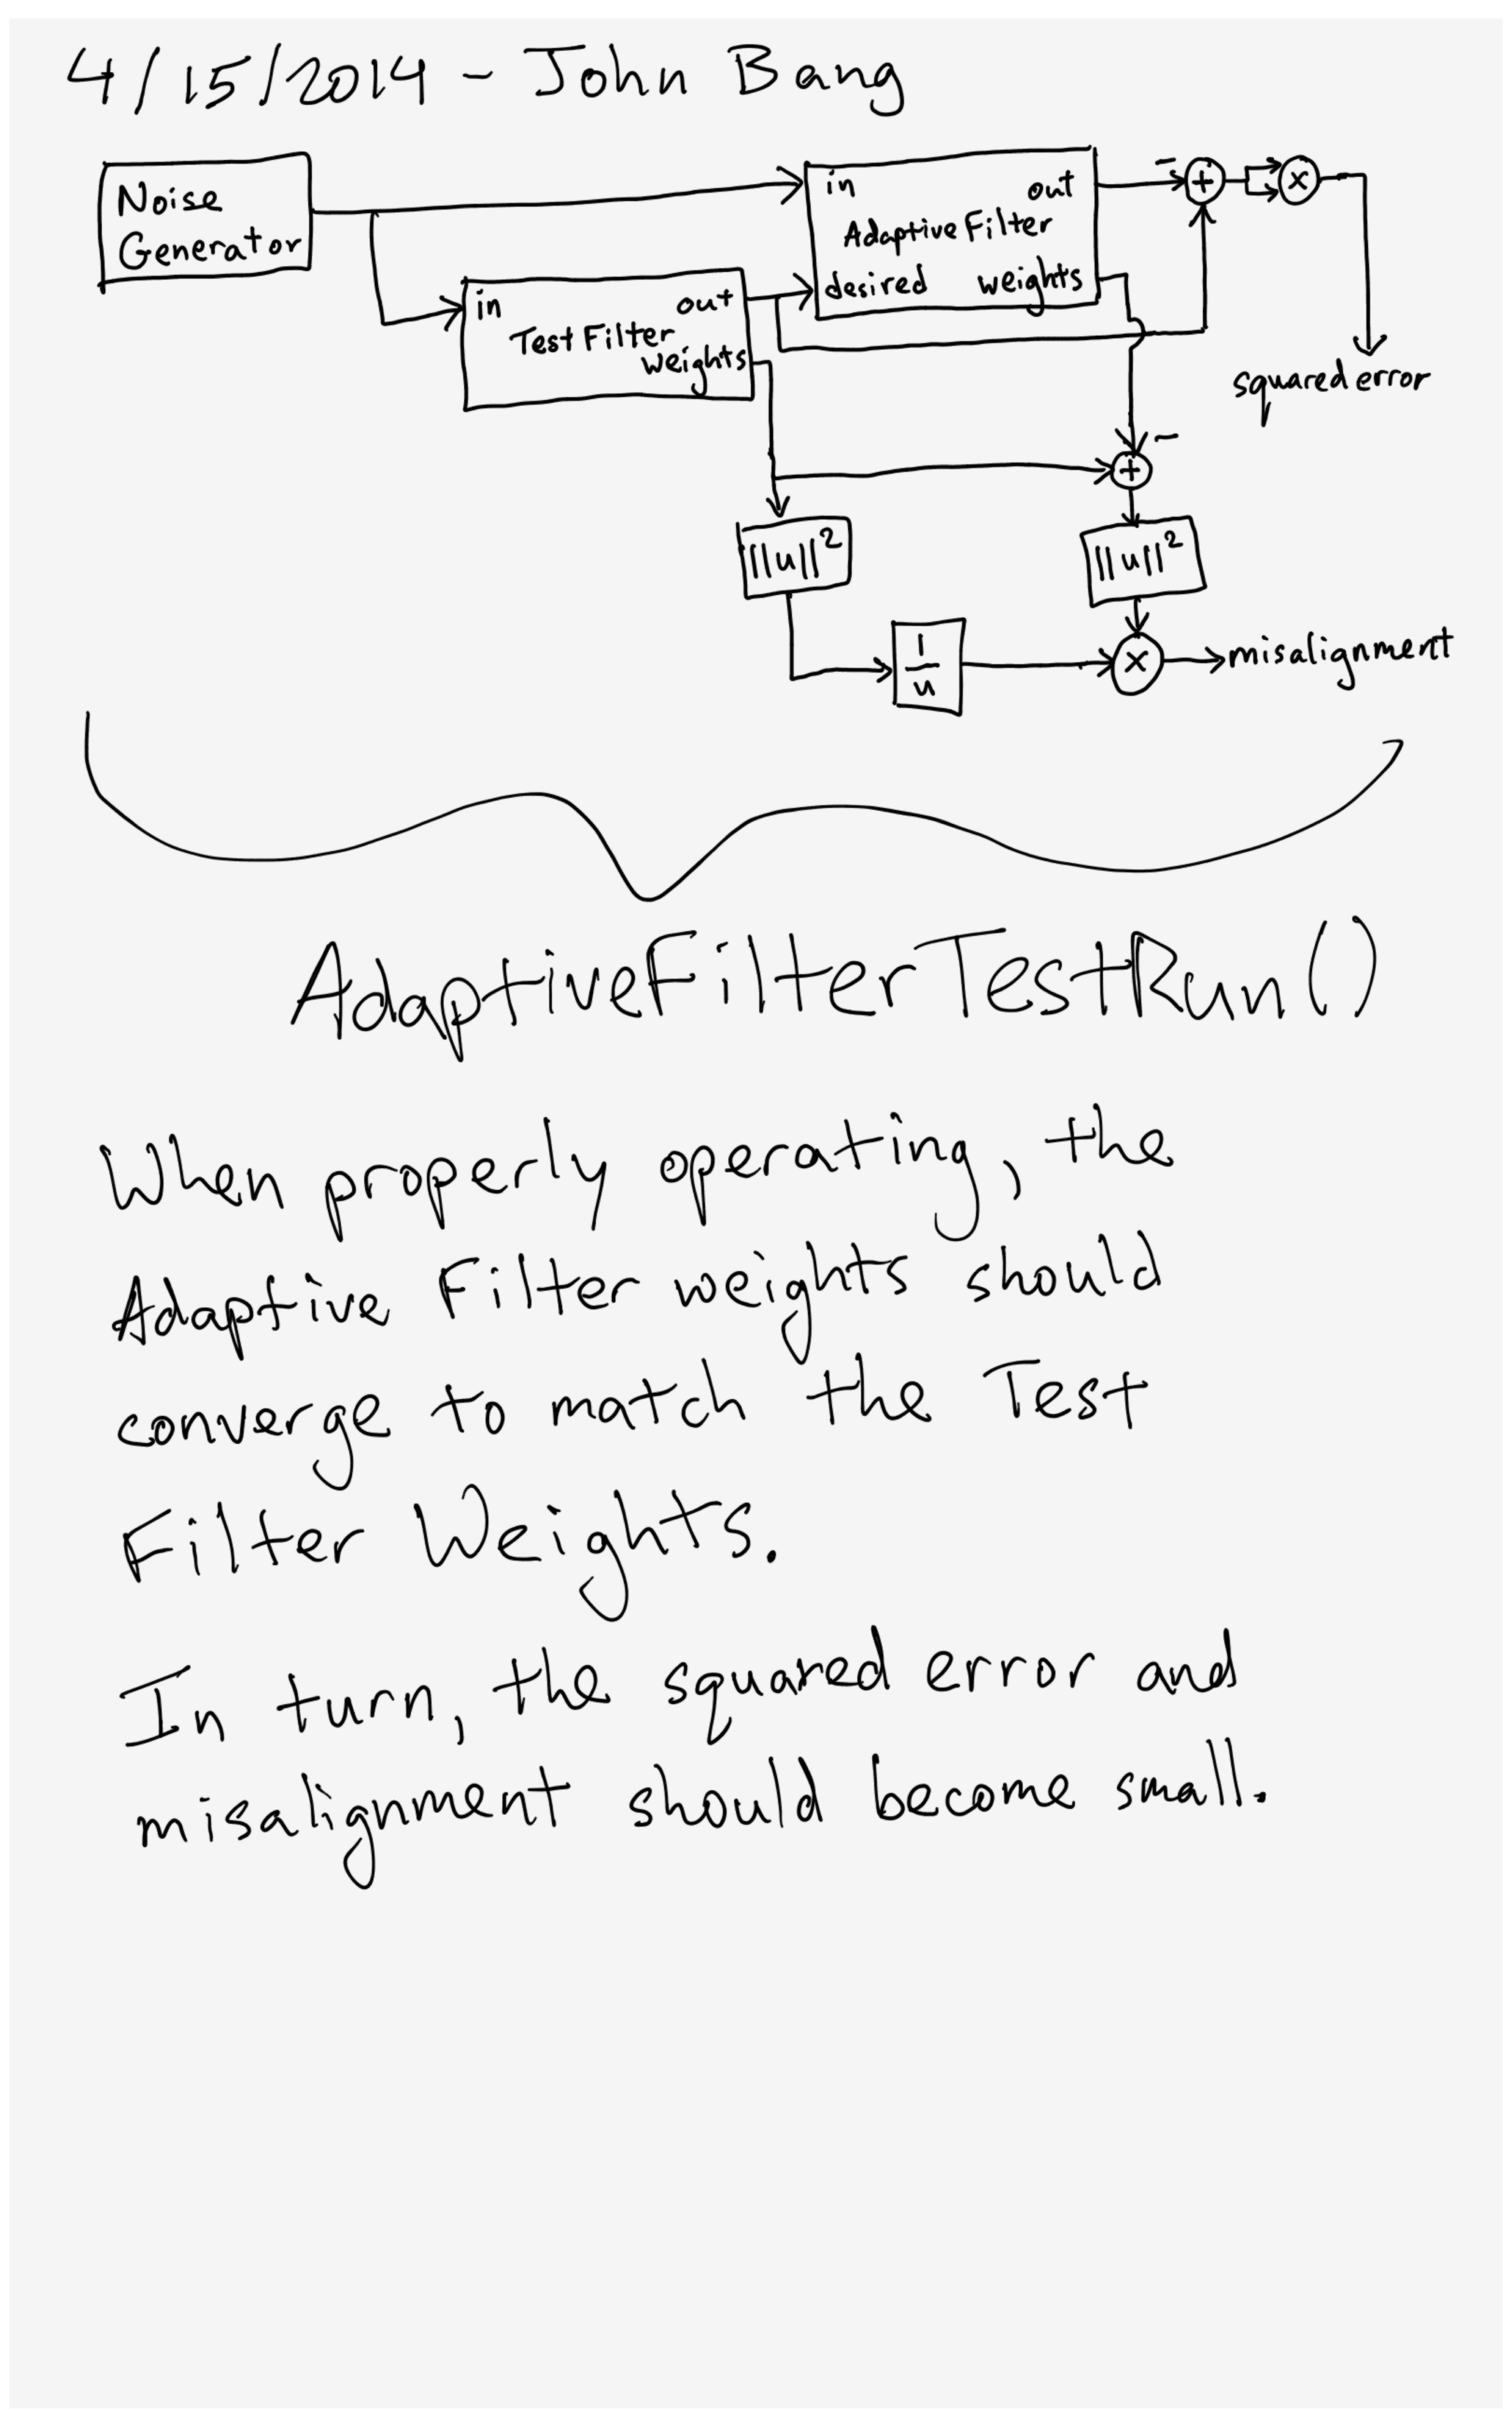 4/15/2014 - John Bang
Noise
Generator
in
out
Adaptive Filter
desired
weights
−
+
x
in
out
Test Filter
weights
squared error
−
+
||u||²
||u||²
1
u
x
misalignment
AdaptiveFilterTestRun()
When properly operating, the
Adaptive Filter weights should
converge to match the Test
Filter Weights.
In turn, the squared error and
misalignment should become small.